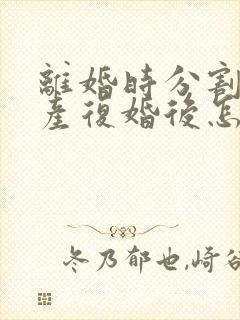 離婚時分割
産復婚後怎
冬乃郁也,崎谷